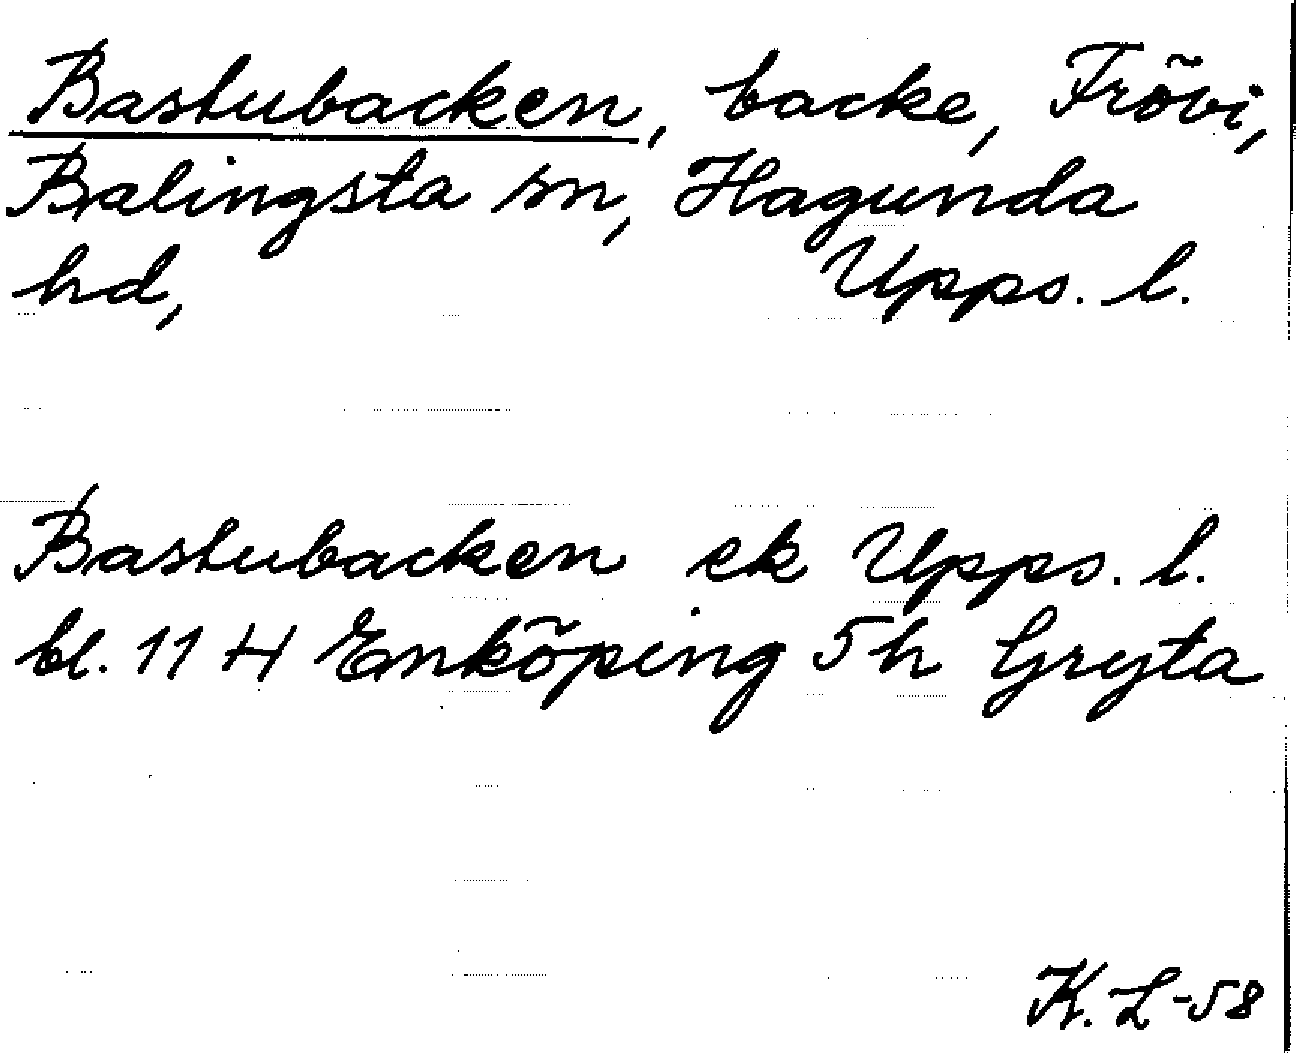 Bastubacken, backe, Frövi,
Balingsta sn, Hagunda
hd, Upps. l.
Bastubacken ek Upps. l.
bl. 11 H Enköping 5h Gryta
K. L-58